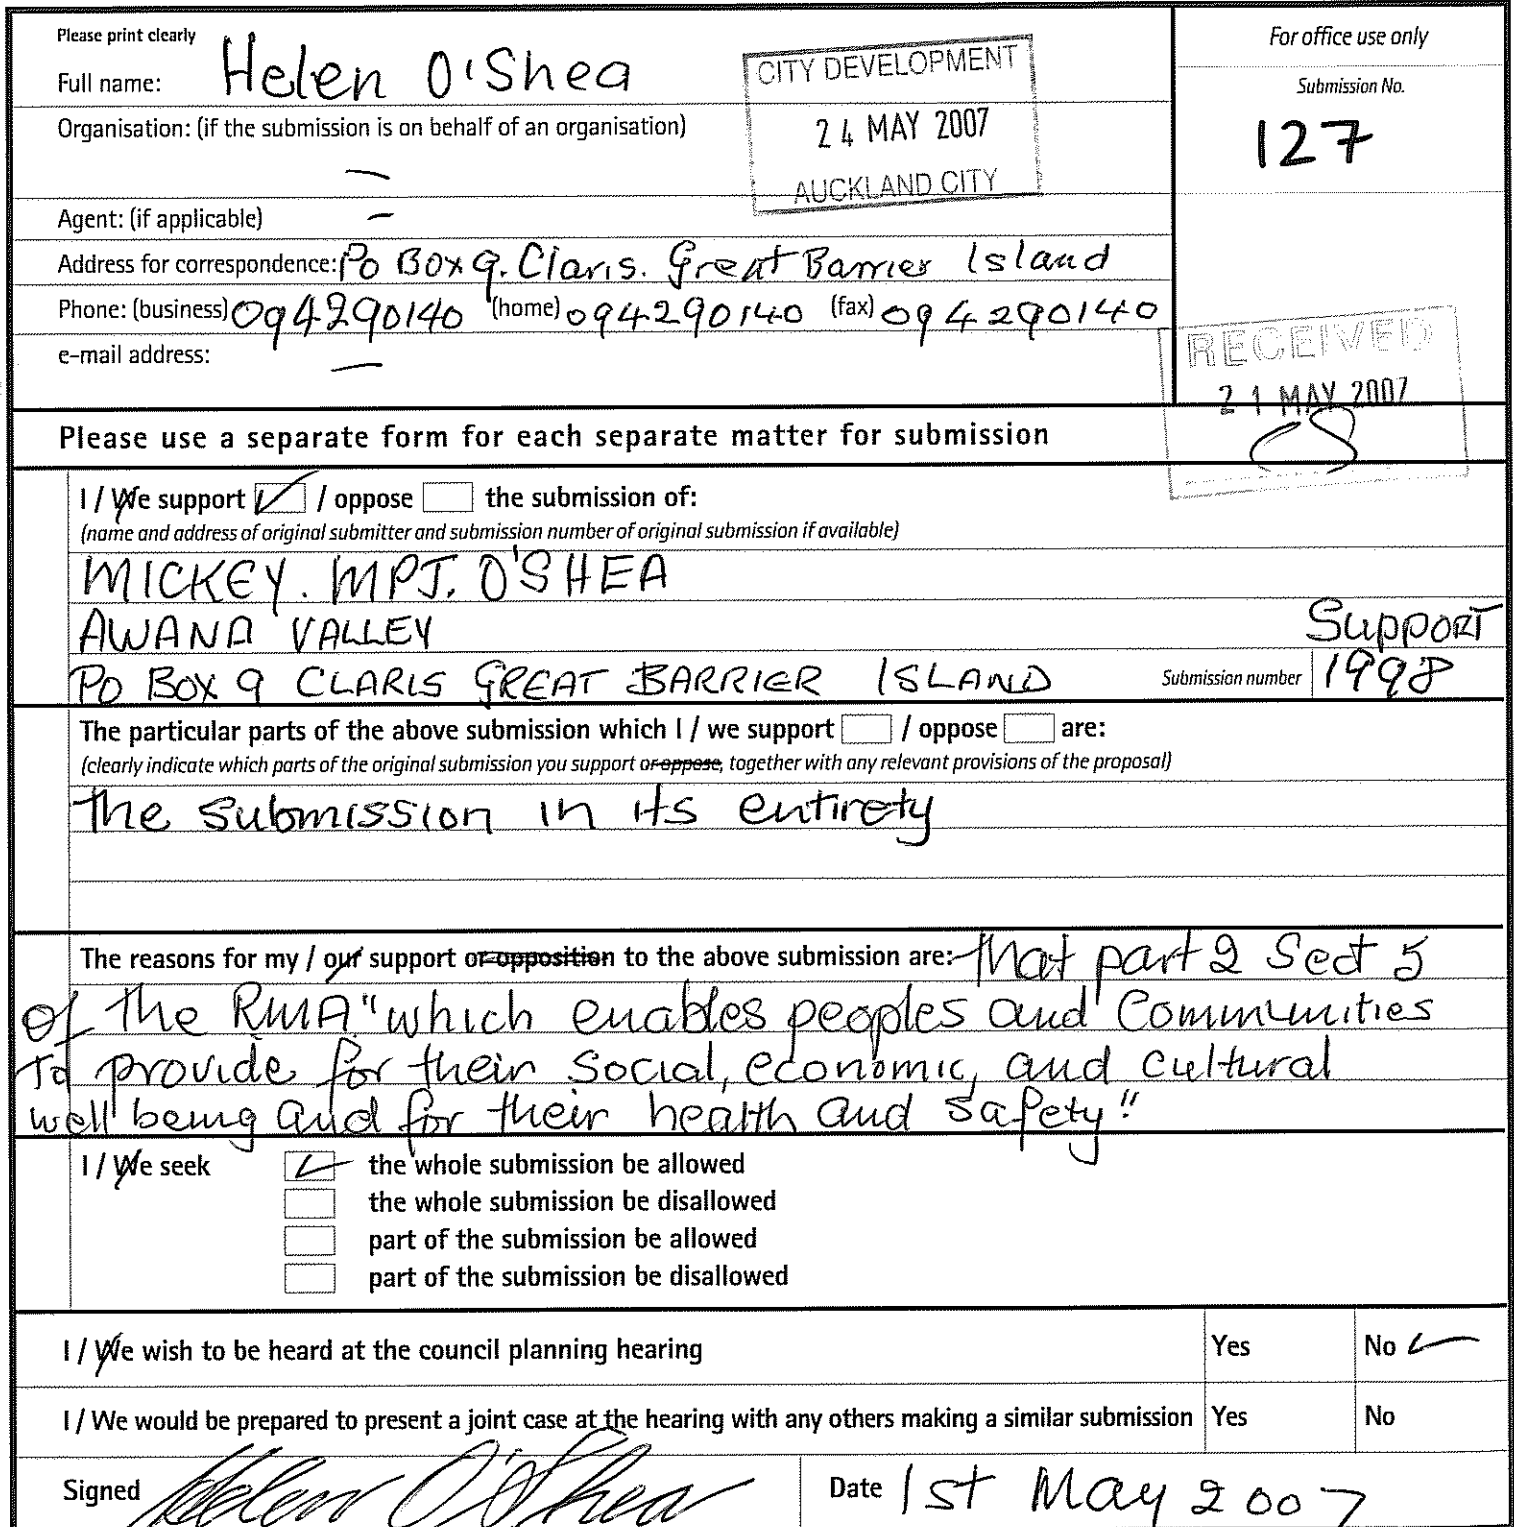 Please print clearly
Full name: Helen O'Shea
CITY DEVELOPMENT
24 MAY 2007
AUCKLAND CITY
For office use only
Submission No.
127
Organisation: (if the submission is on behalf of an organisation)
—
Agent: (if applicable) –
Address for correspondence: Po Box 9. Claris. Great Barrier Island
Phone: (business) 094290140 (home) 094290140 (fax) 094290140
e-mail address: —
RECEIVED
21 MAY 2007
Please use a separate form for each separate matter for submission
I / We support ✓ / oppose the submission of:
(name and address of original submitter and submission number of original submission if available)
MICKEY. MPJ. O'SHEA
AWANA VALLEY Support
PO BOX 9 CLARIS GREAT BARRIER ISLAND Submission number 1998
The particular parts of the above submission which I / we support / oppose are:
(clearly indicate which parts of the original submission you support or oppose, together with any relevant provisions of the proposal)
the submission in its entirety
The reasons for my / our support or opposition to the above submission are: that part 2 Sect 5
of the RMA "which enables peoples and Communities
to provide for their social, economic, and cultural
well being and for their health and safety"
I / We seek ✓ the whole submission be allowed
the whole submission be disallowed
part of the submission be allowed
part of the submission be disallowed
I / We wish to be heard at the council planning hearing Yes No ✓
I / We would be prepared to present a joint case at the hearing with any others making a similar submission Yes No
Signed Helen O'Shea Date 1st May 2007